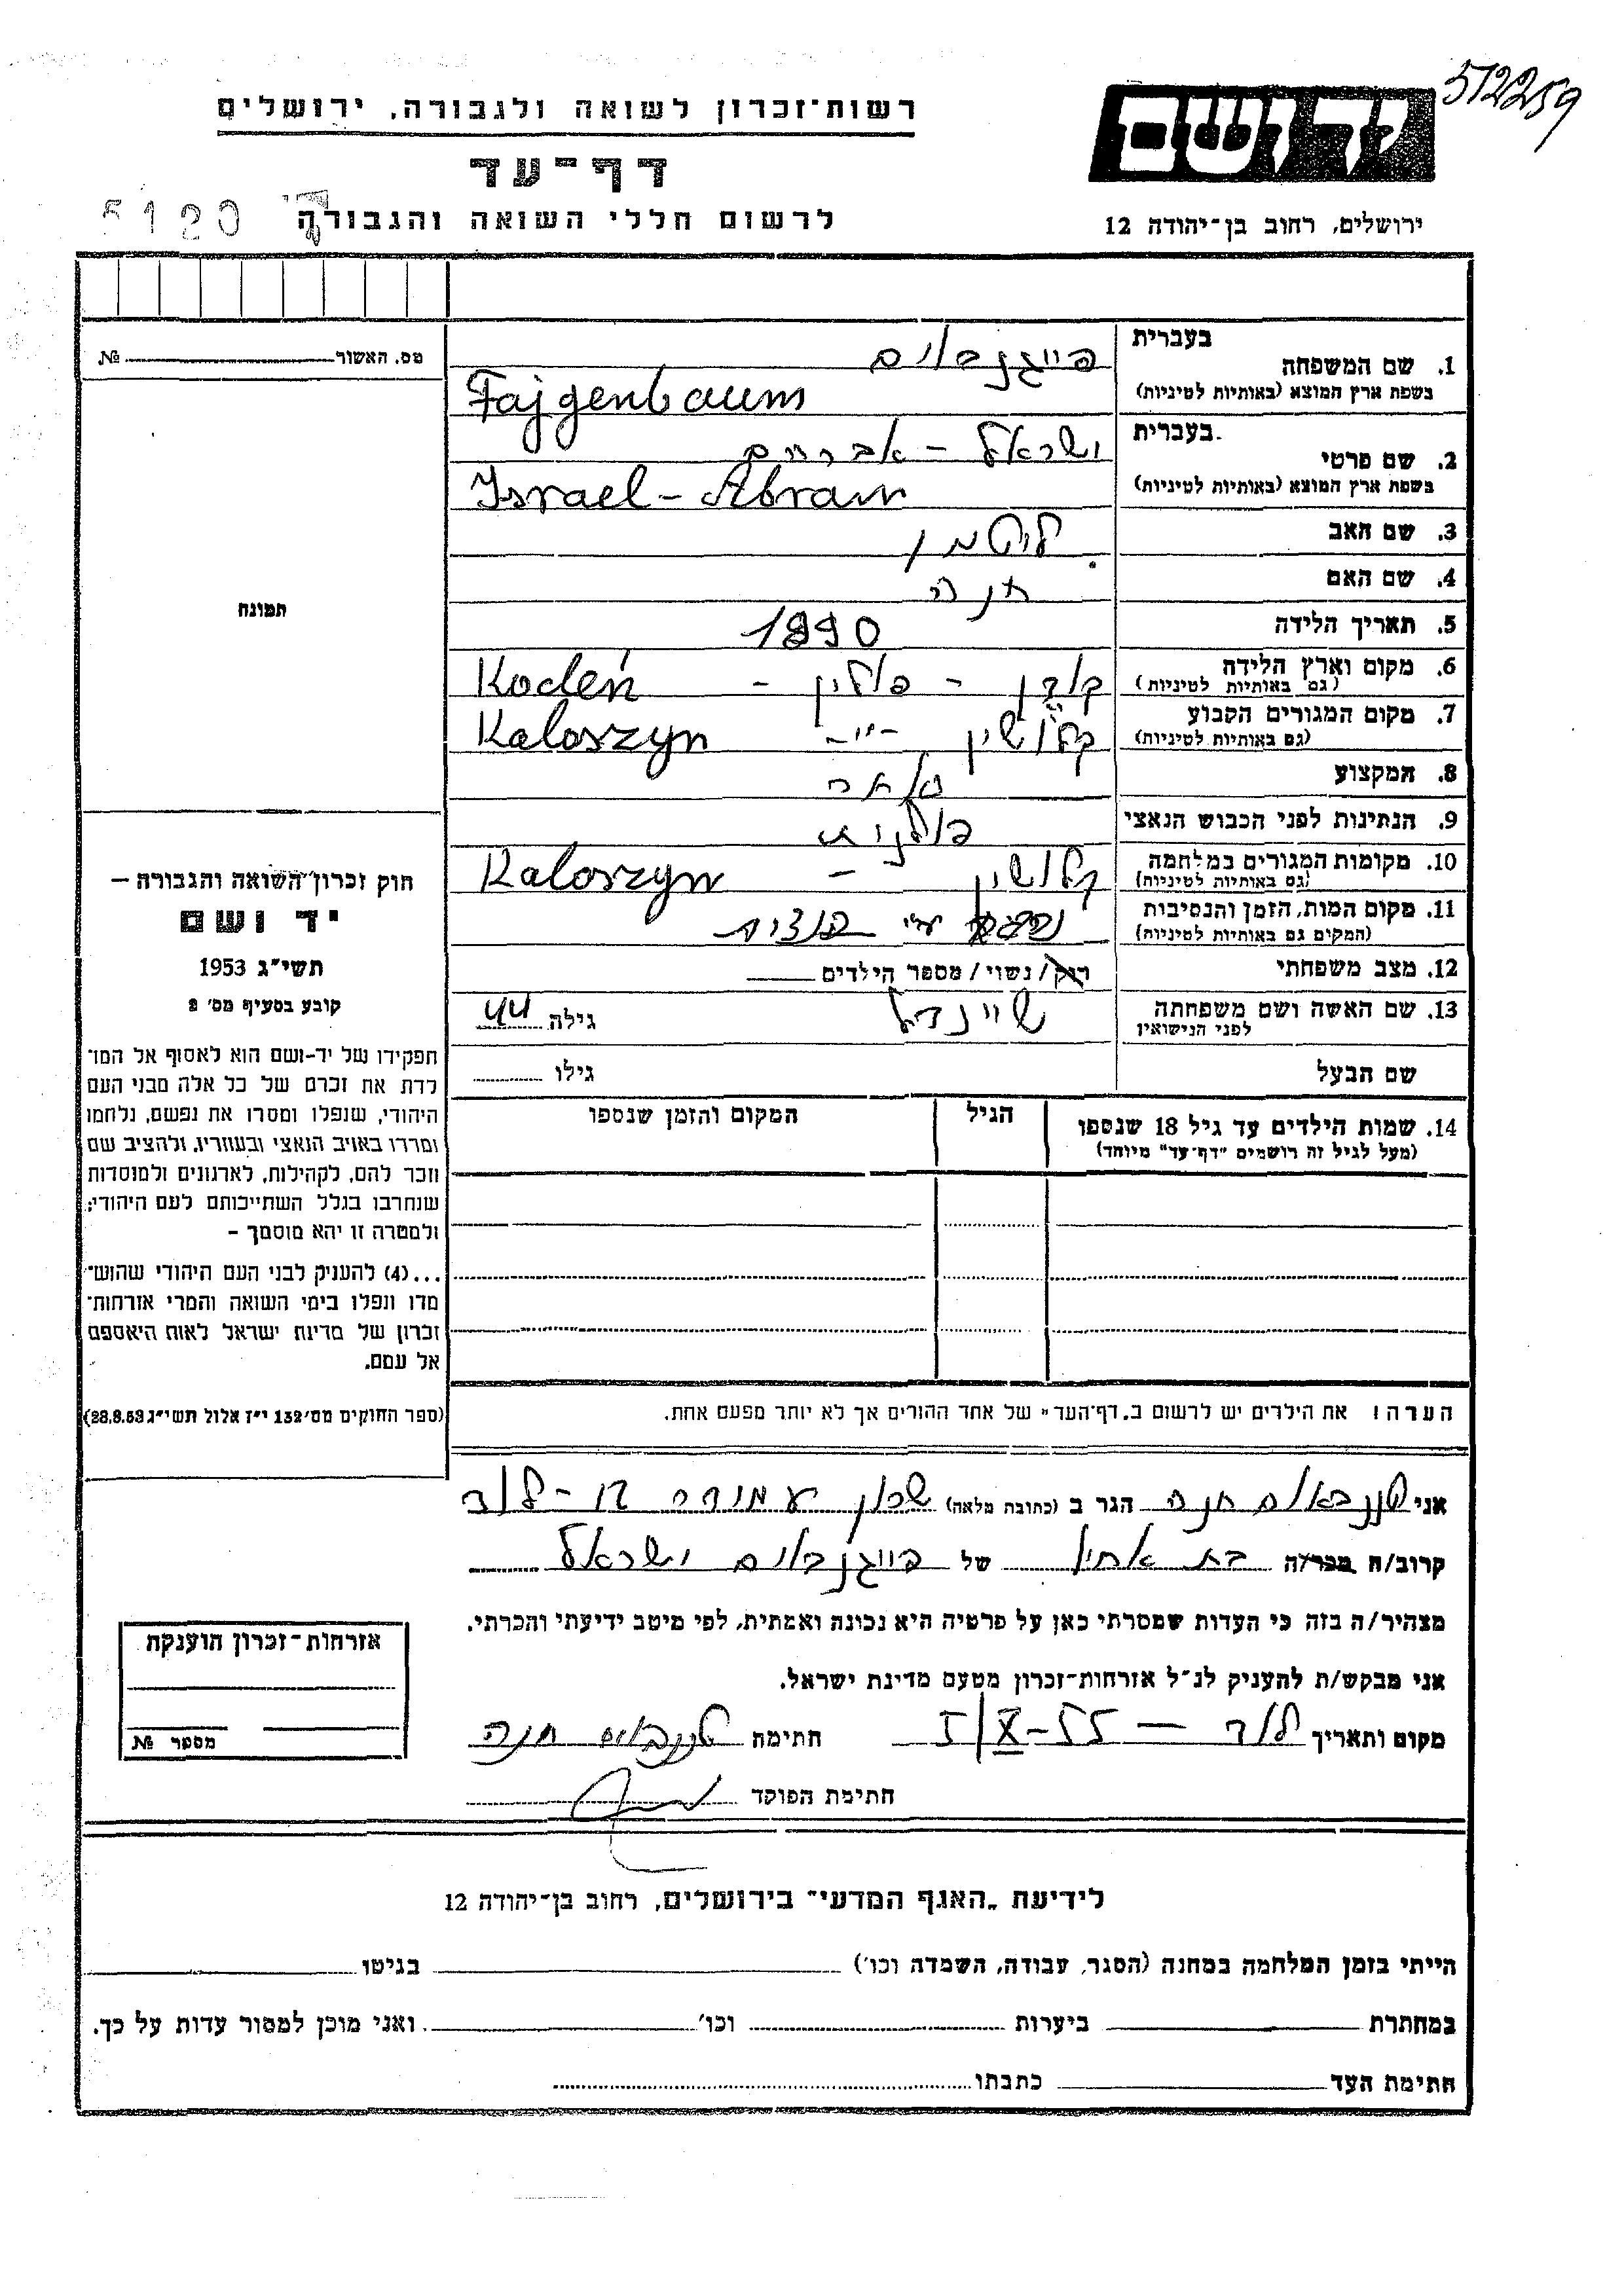 512259
רשות־זכרון לשואה ולגבורה, ירושלים
יד ושם
דף־עד
5120
לרשום חללי השואה והגבורה
ירושלים, רחוב בן־יהודה 12
מס. האשור №
תמונה
חוק זכרון השואה והגבורה —
יד ושם
תשי״ג 1953
קובע בסעיף מס׳ 2
תפקידו של יד-ושם הוא לאסוף אל המו־
לדת את זכרם של כל אלה מבני העם
היהודי, שנפלו ומסרו את נפשם, נלחמו
ומרדו באויב הנאצי ובעוזריו, ולהציב שם
וזכר להם, לקהילות, לארגונים ולמוסדות
שנחרבו בגלל השתייכותם לעם היהודי;
ולמטרה זו יהא מוסמך —
...(4) להעניק לבני העם היהודי שהוש־
מדו ונפלו בימי השואה והמרי אזרחות־
זכרון של מדינת ישראל לאות היאספם
אל עמם.
(ספר החוקים מס׳ 132 י״ז אלול תשי״ג 28.8.53)
בעברית
1. שם המשפחה פייגנבוים
בשפת ארץ המוצא (באותיות לטיניות) Fajgenbaum
בעברית
2. שם פרטי ישראל – אברהם
בשפת ארץ המוצא (באותיות לטיניות) Israel – Abram
3. שם האב ליטמן
4. שם האם חנה
5. תאריך הלידה 1890
6. מקום וארץ הלידה קודן – פולין – Kodeń
(גם באותיות לטיניות)
7. מקום המגורים הקבוע קלושין –״– Kaloszyn
(גם באותיות לטיניות)
8. המקצוע
9. הנתינות לפני הכבוש הנאצי פולנית
10. מקומות המגורים במלחמה קלושין – Kaloszyn
(גם באותיות לטיניות)
11. מקום המות, הזמן והנסיבות
(המקום גם באותיות לטיניות)
12. מצב משפחתי רווק / נשוי / מספר הילדים
13. שם האשה ושם משפחתה שיינדל גילה 44
לפני הנישואין
שם הבעל גילו
14. שמות הילדים עד גיל 18 שנספו הגיל המקום והזמן שנספו
(מעל לגיל זה רושמים "דף־עד" מיוחד)
הערה ! את הילדים יש לרשום ב„דף־העד" של אחד ההורים אך לא יותר מפעם אחת.
אני טננבאום חנה הגר ב (כתובת מלאה) שכון עמידר – לוד
קרוב/ה מכר/ה בת אחיו של פייגנבוים ישראל
מצהיר/ה בזה כי העדות שמסרתי כאן על פרטיה היא נכונה ואמתית, לפי מיטב ידיעתי והכרתי.
אני מבקש/ת להעניק לנ״ל אזרחות־זכרון מטעם מדינת ישראל.
מקום ותאריך לוד — חתימה טננבאום חנה
חתימת הפוקד
אזרחות־זכרון הוענקה
מספר №
לידיעת „האגף המדעי״ בירושלים, רחוב בן־יהודה 12
הייתי בזמן המלחמה במחנה (הסגר, עבודה, השמדה וכו׳) בגיטו
במחתרת ביערות וכו׳ ואני מוכן למסור עדות על כך.
חתימת העד כתבתו